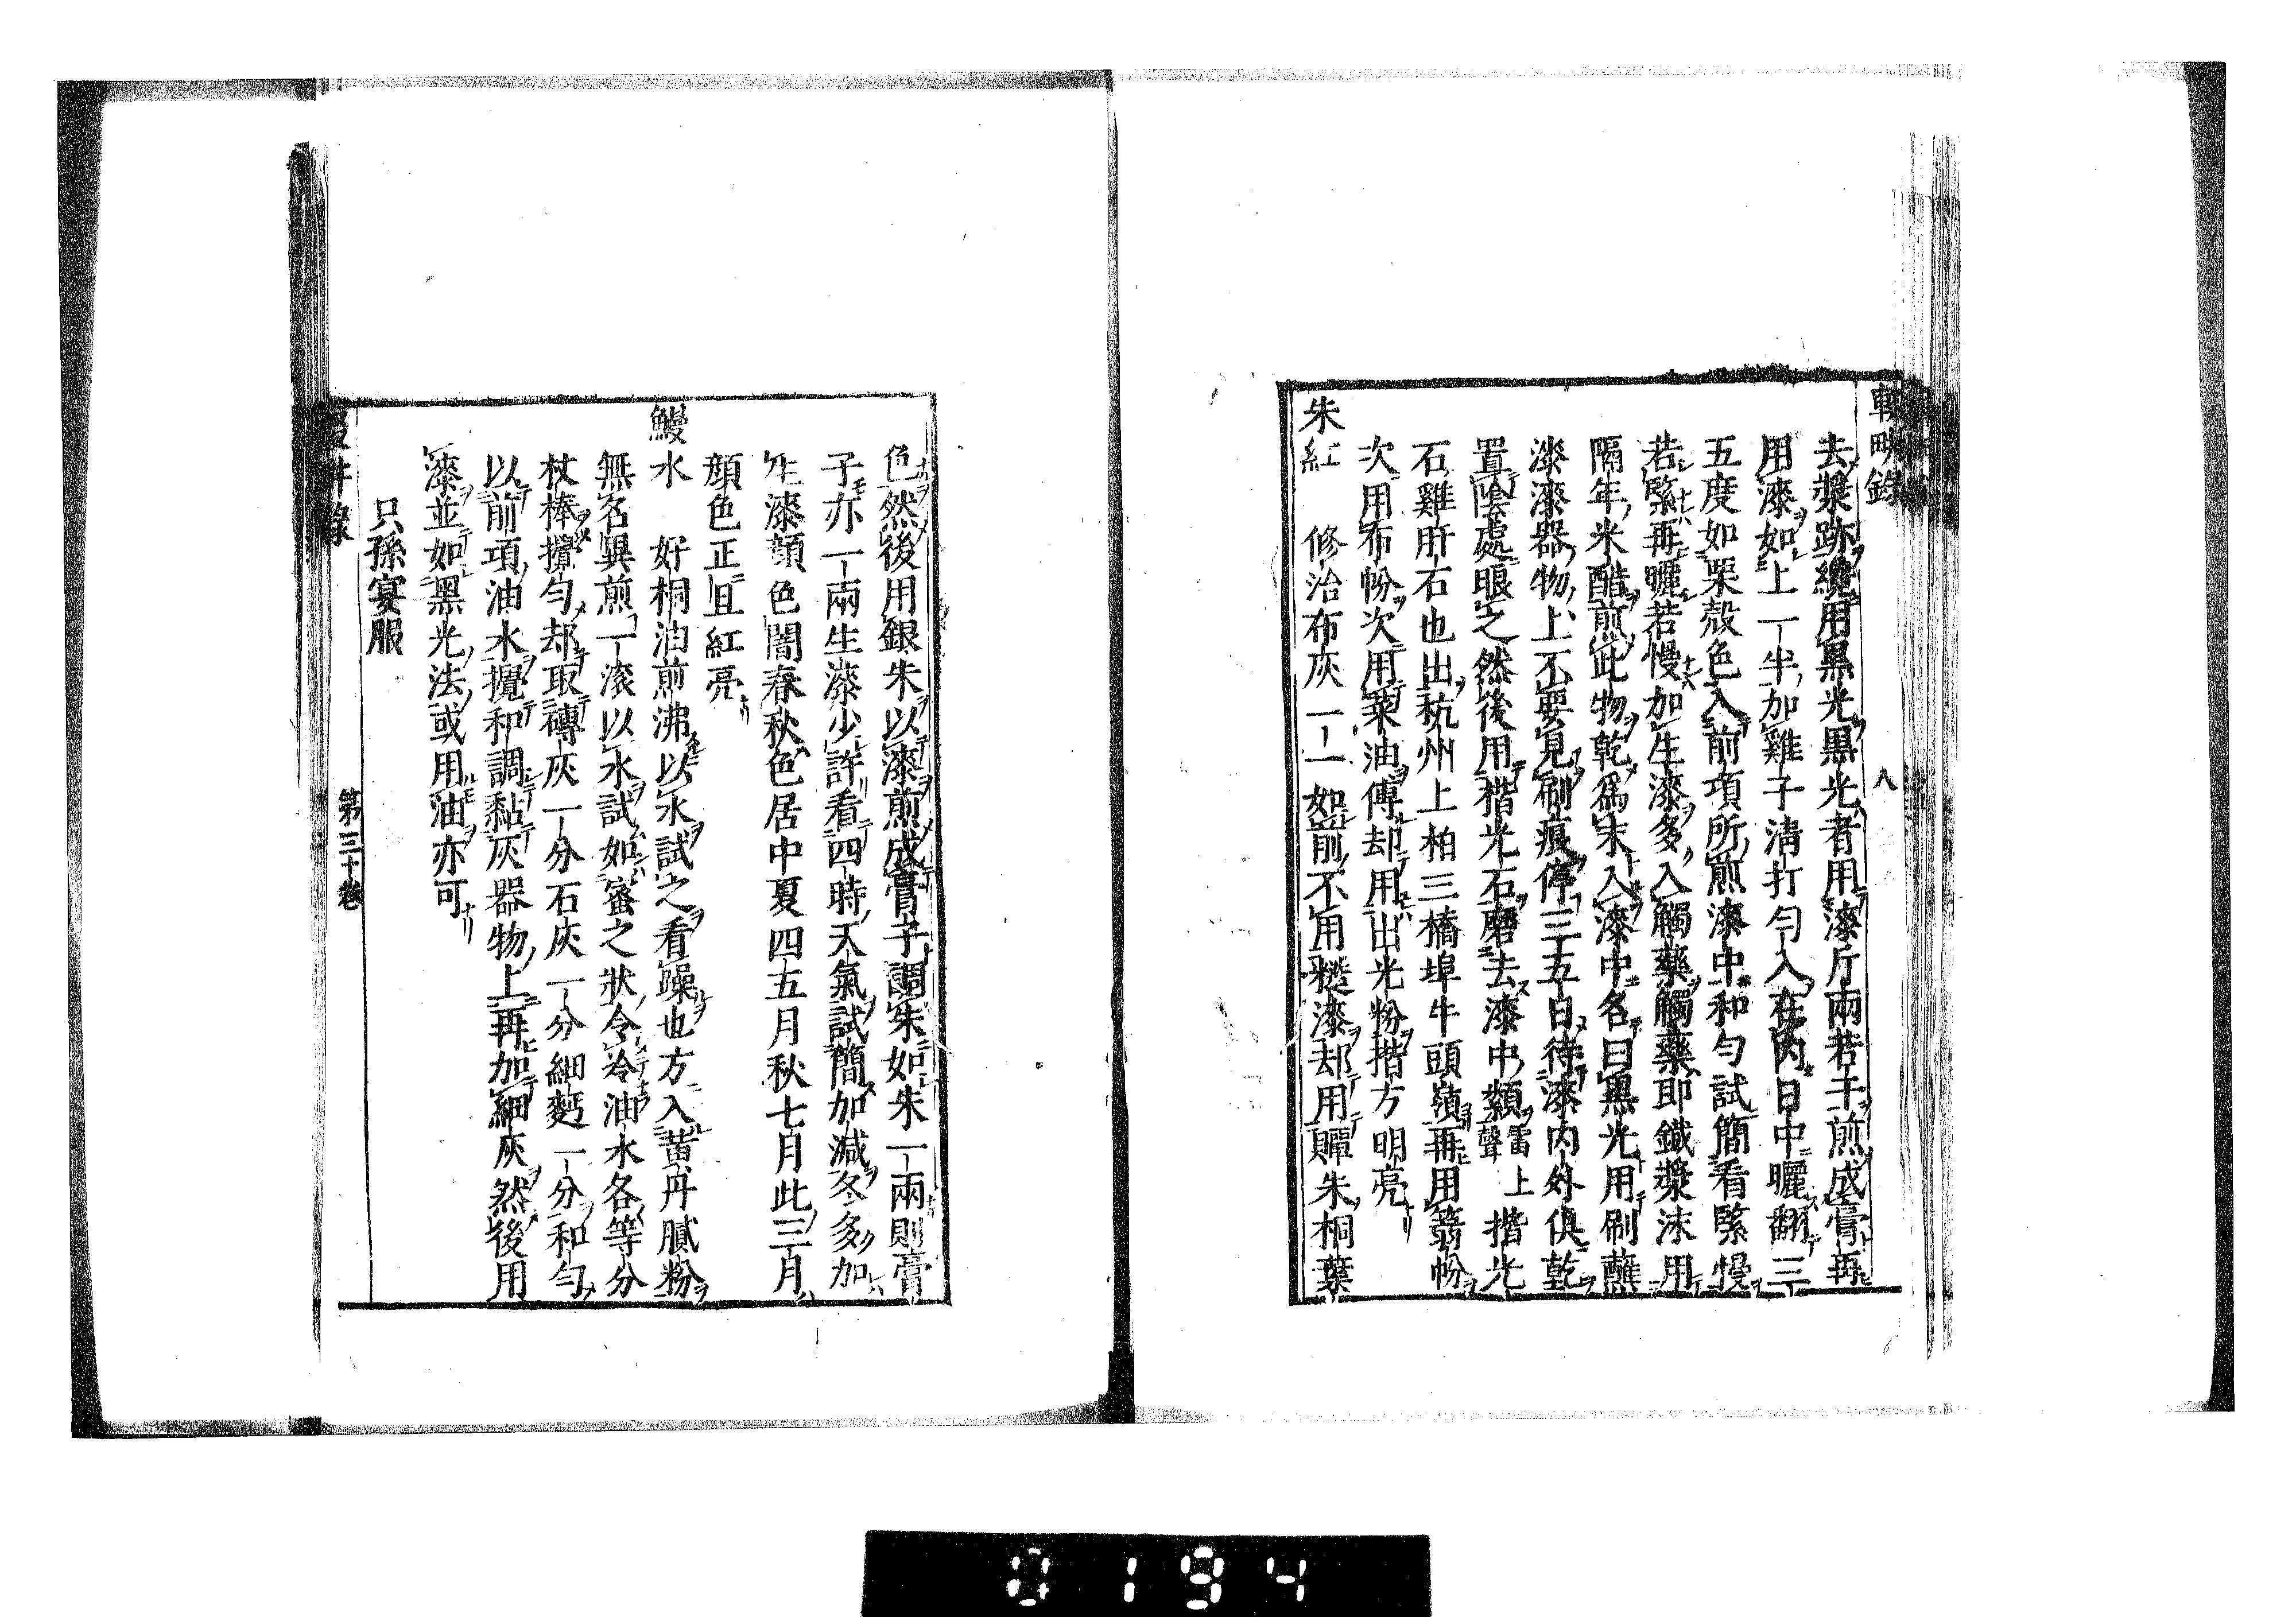 輟畊錄
八
去漿跡纔用黒光黒光者用漆斤兩若干煎成膏再
用漆如上一半加雞子清打勻入在內日中曬翻三
五度如栗殼色入前項所煎漆中和勻試簡看緊慢
若緊再曬若慢加生漆多入觸藥觸藥即鐵漿沫用
隔年米醋煎此物乾爲末入漆中各曰黒光用刷蘸
漆漆器物上不要見刷痕停三五日待漆内外俱乾
置陰處晾之然後用揩光石磨去漆中纇雷上聲揩光
石雞肝石也出杭州上柏三橋埠牛頭嶺再用蒻帉
次用布帉次用菜油傅却用出光粉揩方明亮
朱紅　修治布灰一一如前不用糙漆却用贉朱桐葉
色然後用銀朱以漆煎成膏子調朱如朱一兩則膏
子亦一兩生漆少許看四時天氣試簡加減冬多加
生漆顔色闇春秋色居中夏四五月秋七月此三月
顔色正且紅亮
鰻水　好桐油煎沸以水試之看躁也方入黄丹膩粉
無名異煎一滾以水試如蜜之狀令冷油水各等分
杖棒攪勻却取磚灰一分石灰一分細麪一分和勻
以前項油水攪和調黏灰器物上再加細灰然後用
漆並如黑光法或用油亦可
只孫宴服
輟畊錄
第三十卷
0194